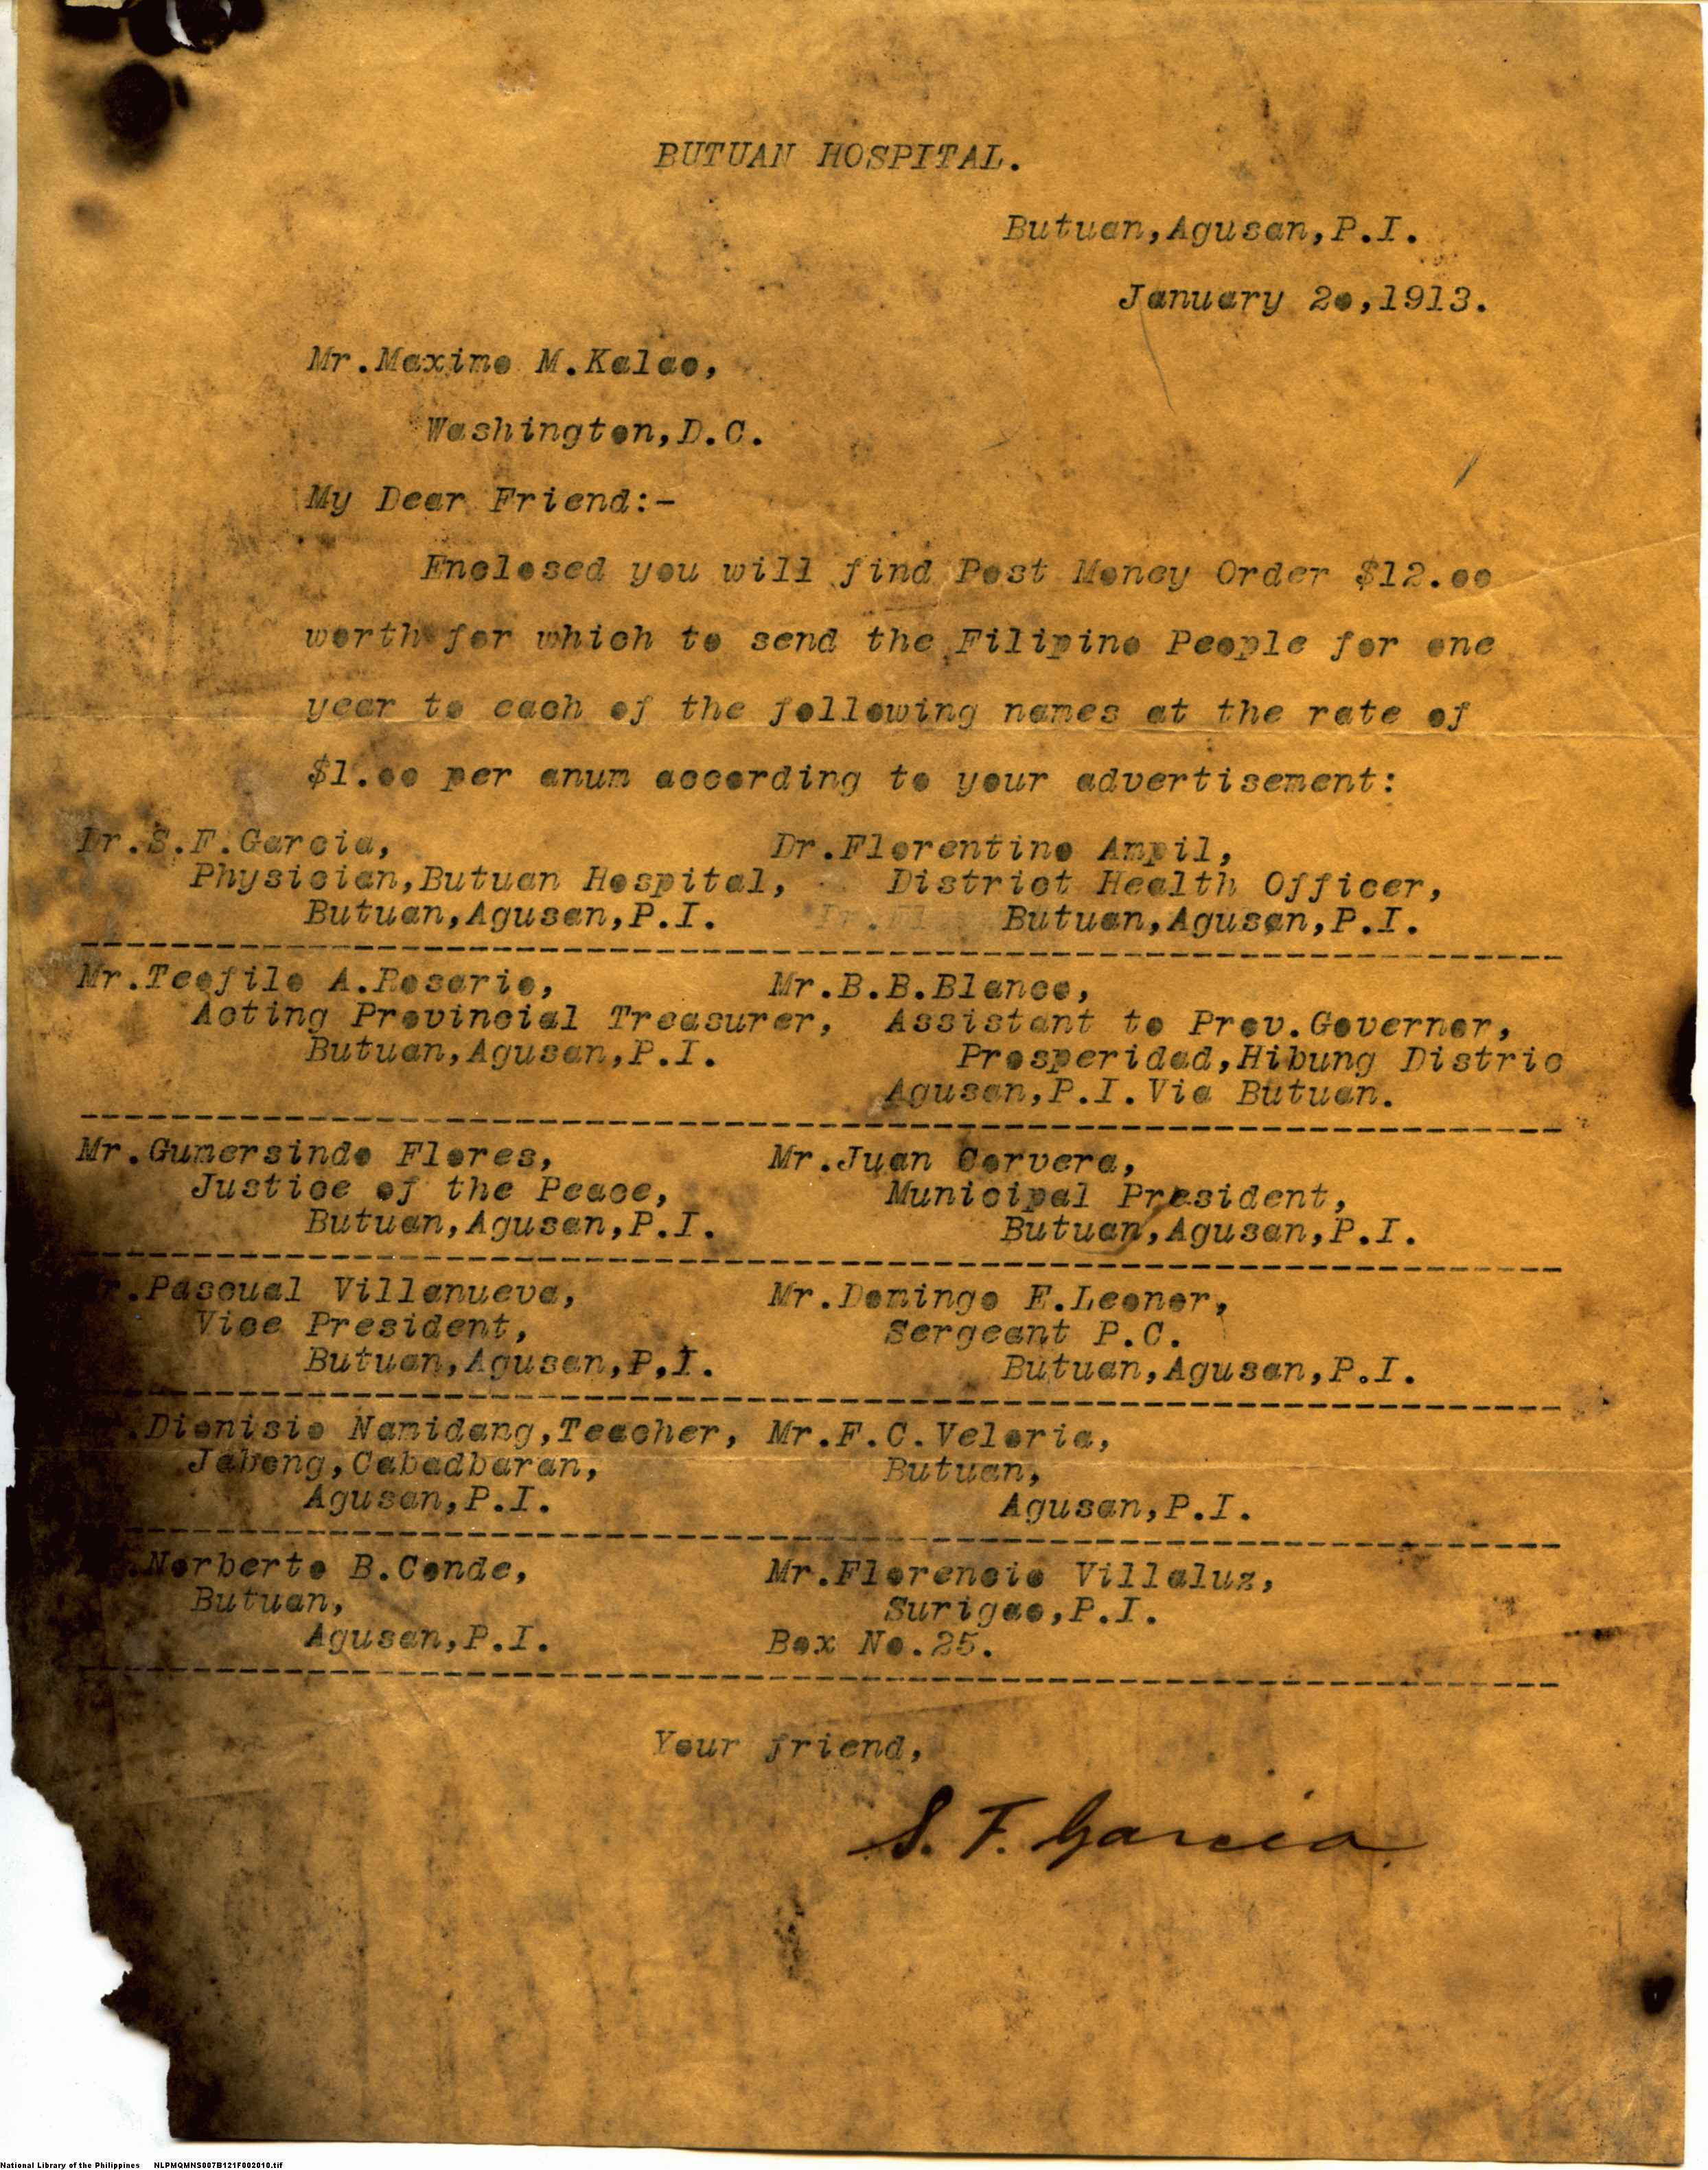 BUTUAN HOSPITAL.
Butuan,Agusan,P.I.
January 20,1913.
Mr.Maximo M.Kalao,
Washington,D.C.
My Dear Friend:-
Enclosed you will find Post Money Order $12.00
worth for which to send the Filipino People for one
year to each of the following names at the rate of
$1.00 per anum according to your advertisement:
Dr.S.F.Garcia,
Physician,Butuan Hospital,
Butuan,Agusan,P.I.
Dr.Florentino Ampil,
District Health Officer,
Butuan,Agusan,P.I.
Mr.Teofilo A.Rosario,
Acting Provincial Treasurer,
Butuan,Agusan,P.I.
Mr.B.B.Blanco,
Assistant to Prov.Governor,
Prosperidad,Hibung Distric
Agusan,P.I.Via Butuan.
Mr.Gumersindo Flores,
Justice of the Peace,
Butuan,Agusan,P.I.
Mr.Juan Corvera,
Municipal President,
Butuan,Agusan,P.I.
r.Pascual Villanueva,
Vice President,
Butuan,Agusan,P.I.
Mr.Domingo E.Leonor,
Sergeant P.C.
Butuan,Agusan,P.I.
.Dionisio Namidang,Teacher,
Jabong,Cabadbaran,
Agusan,P.I.
Mr.F.C.Veloria,
Butuan,
Agusan,P.I.
.Norberto B.Conde,
Butuan,
Agusan,P.I.
Mr.Florencio Villaluz,
Surigao,P.I.
Box No.25.
Your friend,
S. F. Garcia
National Library of the Philippines NLPMQMNS007B121F002010.tif